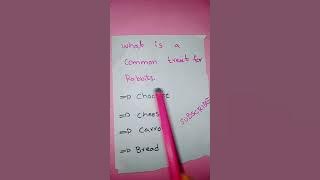 What is a
Common treat for
Rabbits.
⇒ Chocolate
⇒ Chees
⇒ Carro
⇒ Bread
SUBSCRIBE